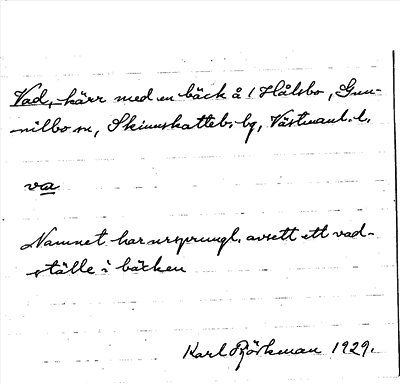 Vad, kärr med en bäck å 1 Hålsbo, Gun-
nilbo sn, Skinnskatteb. bg, Västmanl. l.
va
Namnet har ursprungl. avsett ett vad-
ställe i bäcken
Karl Björkman 1929.